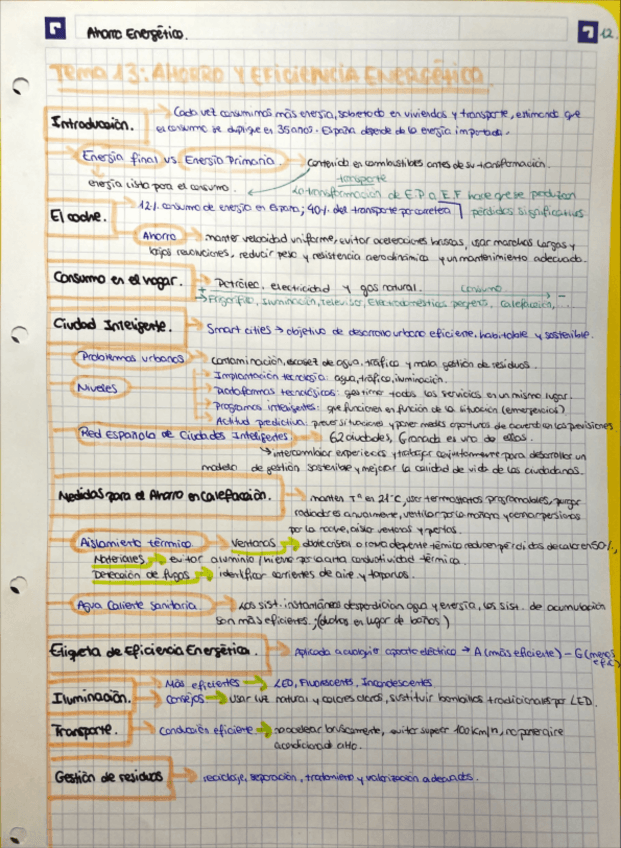 Ahorro Energético. 12.
Tema 13: AHORRO Y EFICIENCIA ENERGÉTICA.
Introducción. → Cada vez consumimos más energía, sobretodo en viviendas y transporte, estimando que
el consumo se duplique en 35 años. España depende de la energía importada.
Energía final vs. Energía Primaria. → contenida en combustibles antes de su transformación.
energía lista para el consumo. transporte
La transformación de E.P a E.F hace que se produzcan
El coche. → 12% consumo de energía en España; 40% del transporte por carretera pérdidas significativas
Ahorro → mantener velocidad uniforme, evitar aceleraciones bruscas, usar marchas largas y
bajas revoluciones, reducir peso y resistencia aerodinámica y un mantenimiento adecuado.
Consumo en el hogar. → Petróleo, electricidad y gas natural. consumo
+ → -
→ Frigorífico, iluminación, televisor, Electrodomésticos pequeños, calefacción, ...
Ciudad Inteligente. → Smart cities → objetivo de desarrollo urbano eficiente, habitable y sostenible.
Problemas urbanos → contaminación, escasez de agua, tráfico y mala gestión de residuos.
Niveles → Implantación tecnología: agua, tráfico, iluminación.
→ Plataformas tecnológicas: gestionar todos los servicios en un mismo lugar.
→ Programas inteligentes: que funcionen en función de la situación (emergencias)
→ Actitud predictiva: prever situaciones y poner medios oportunos de acuerdo en las previsiones
Red Española de Ciudades Inteligentes → 62 ciudades, Granada es una de ellas.
→ intercambiar experiencias y trabajar conjuntamente para desarrollar un
modelo de gestión sostenible y mejorar la calidad de vida de los ciudadanos.
Medidas para el Ahorro en Calefacción. → mantener Tª en 21°C, usar termostatos programables, purgar
radiadores anualmente, ventilar por la mañana y cerrar persianas
por la noche, aislar ventanas y puertas.
Aislamiento térmico → Ventanas → doble cristal o rotura de puente térmico reducen pérdidas de calor en 50%,
Materiales → evitar aluminio/hierro por la alta conductividad térmica.
Detección de fugas → identificar corrientes de aire y taparlas.
Agua Caliente Sanitaria → Los sist. instantáneos desperdician agua y energía, los sist. de acumulación
son más eficientes. (duchas en lugar de baños)
Etiqueta de Eficiencia Energética. → Aplicada a cualquier aparato eléctrico → A (más eficiente) – G (menos
efic.)
Iluminación. → Más eficientes → LED, Fluorescents, Incandescentes
→ Consejos → usar luz natural y colores claros, sustituir bombillas tradicionales por LED.
Transporte. → Conducción eficiente → no acelerar bruscamente, evitar superar 100km/h, no poner aire
acondicionado alto.
Gestión de residuos → reciclaje, separación, tratamiento y valorización adecuados.